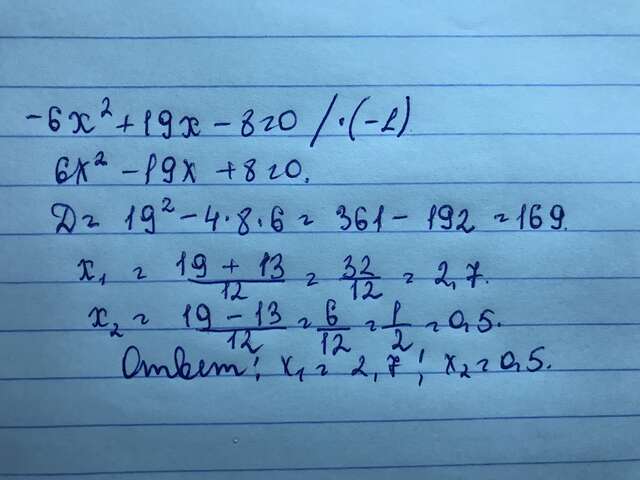 -6x² + 19x - 8 = 0 / · (-1)
6x² - 19x + 8 = 0.
D = 19² - 4 · 8 · 6 = 361 - 192 = 169.
x₁ = (19 + 13)/12 = 32/12 = 2,7.
x₂ = (19 - 13)/12 = 6/12 = 1/2 = 0,5.
Ответ: x₁ = 2,7; x₂ = 0,5.